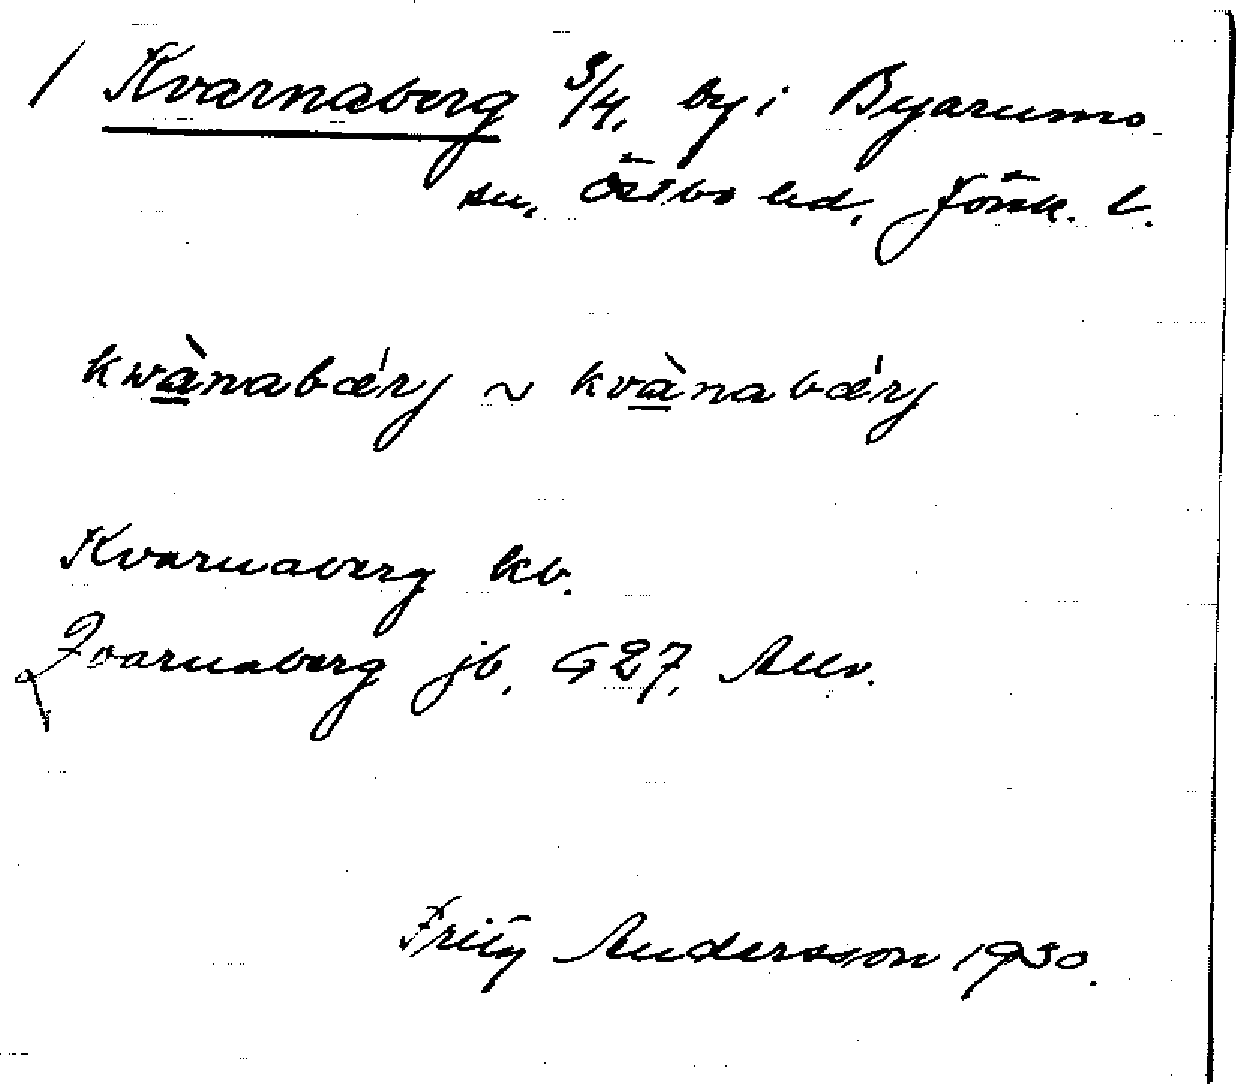 / Kvarnaberg 3/4, by i Byarums
sn, Östbo hd, Jönk. l.
kwànabǽrj ~ kvànabǽrj
Kvarnaberg kb.
Qvarnaberg jb, G27,
Fritz Andersson 1930.